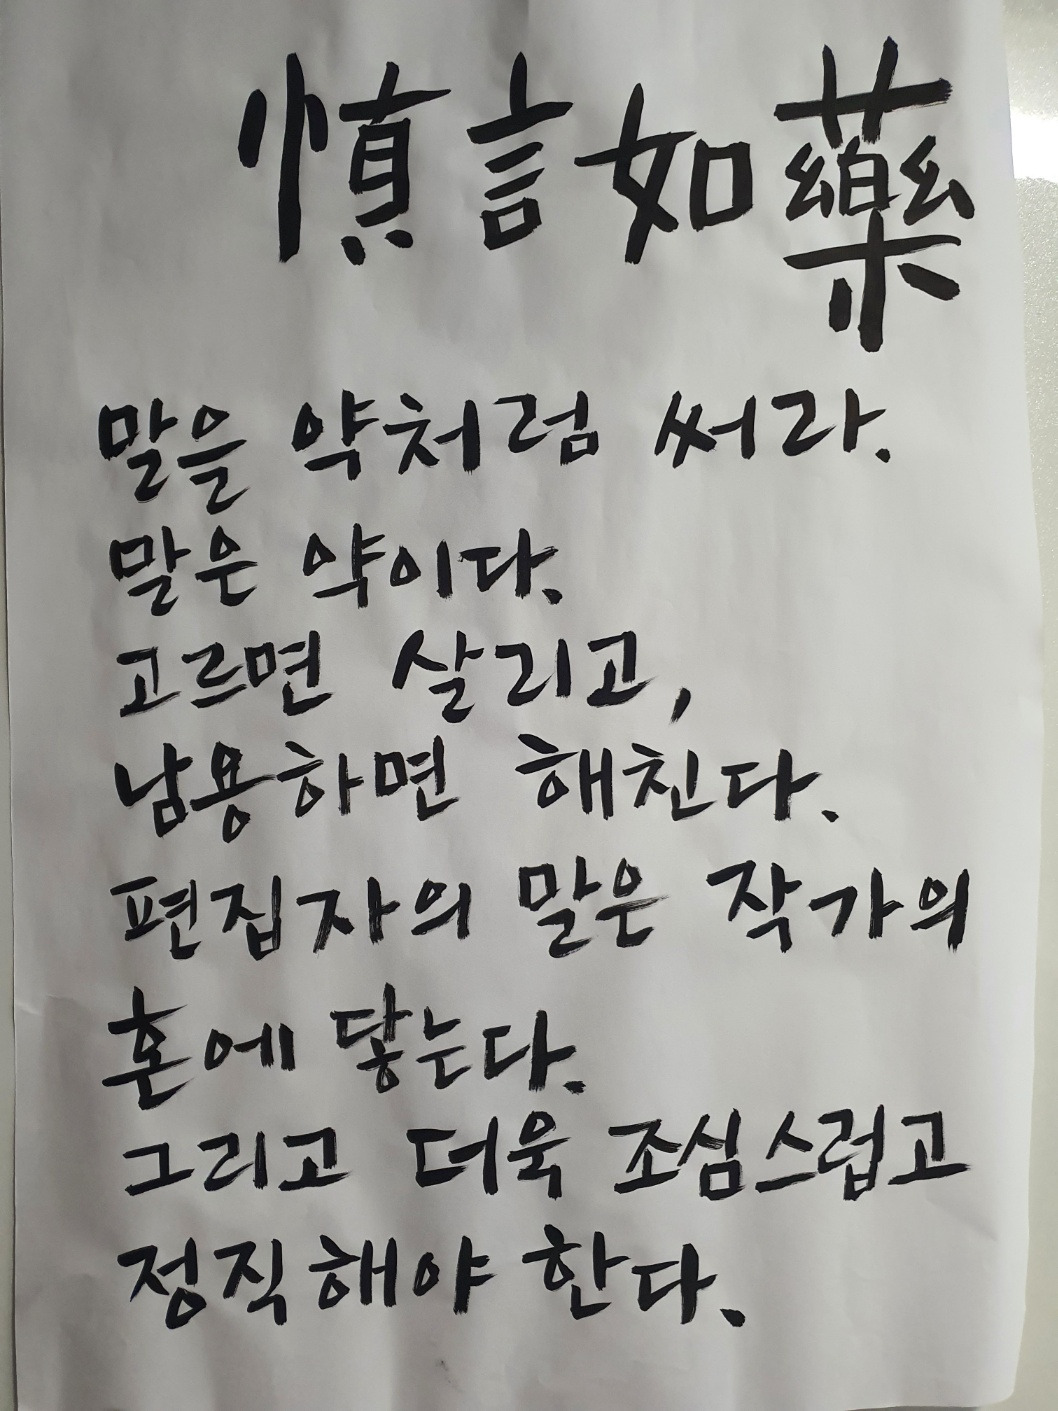 愼言如藥
말을 약처럼 써라.
말은 약이다.
고르면 살리고,
남용하면 해친다.
편집자의 말은 작가의
혼에 닿는다.
그리고 더욱 조심스럽고
정직해야 한다.